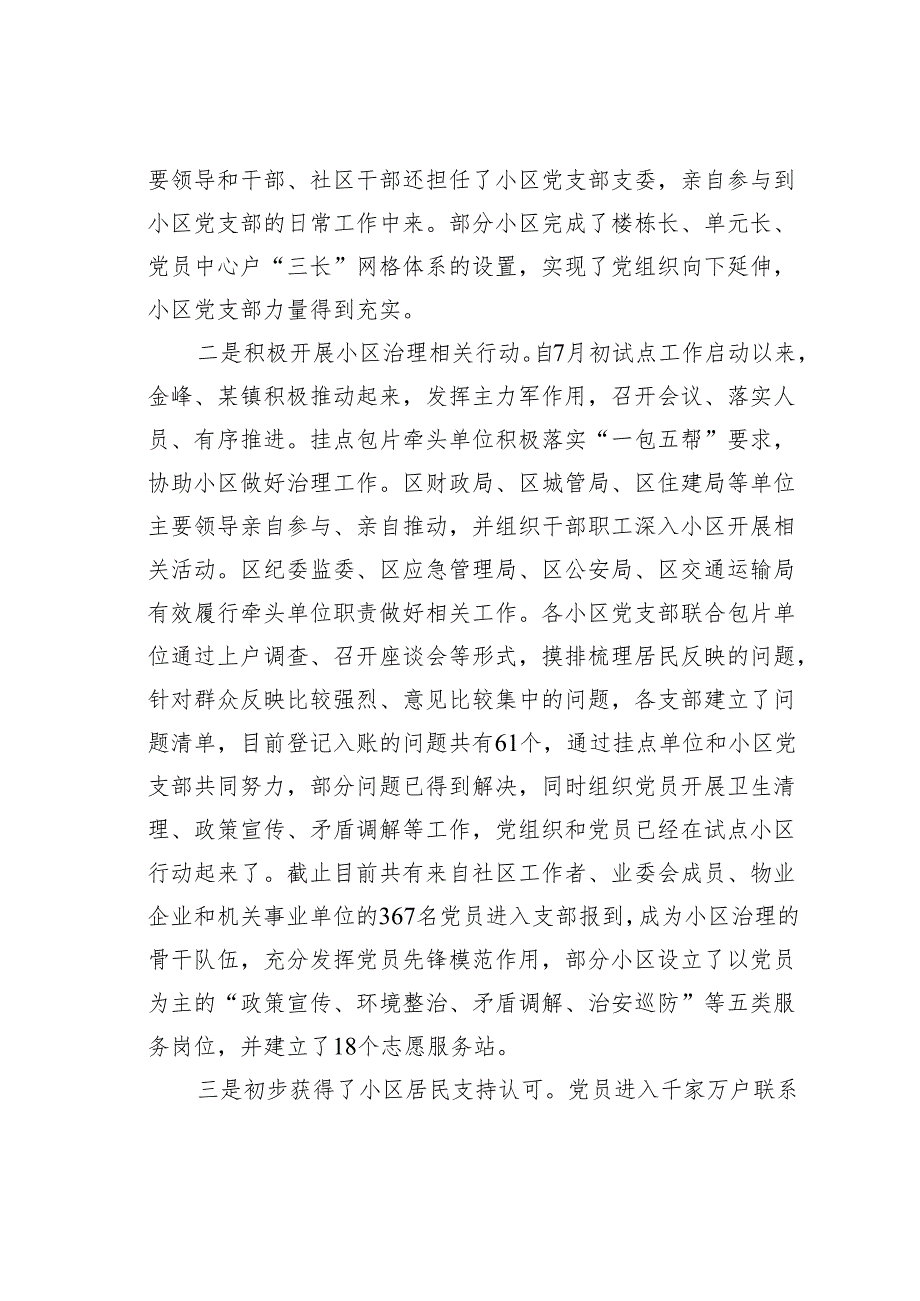 要领导和干部、社区干部还担任了小区党支部支委，亲自参与到
小区党支部的日常工作中来。部分小区完成了楼栋长、单元长、
党员中心户“三长”网格体系的设置，实现了党组织向下延伸，
小区党支部力量得到充实。
二是积极开展小区治理相关行动。自7月初试点工作启动以来，
金峰、某镇积极推动起来，发挥主力军作用，召开会议、落实人
员、有序推进。挂点包片牵头单位积极落实“一包五帮”要求，
协助小区做好治理工作。区财政局、区城管局、区住建局等单位
主要领导亲自参与、亲自推动，并组织干部职工深入小区开展相
关活动。区纪委监委、区应急管理局、区公安局、区交通运输局
有效履行牵头单位职责做好相关工作。各小区党支部联合包片单
位通过上户调查、召开座谈会等形式，摸排梳理居民反映的问题，
针对群众反映比较强烈、意见比较集中的问题，各支部建立了问
题清单，目前登记入账的问题共有61个，通过挂点单位和小区党
支部共同努力，部分问题已得到解决，同时组织党员开展卫生清
理、政策宣传、矛盾调解等工作，党组织和党员已经在试点小区
行动起来了。截止目前共有来自社区工作者、业委会成员、物业
企业和机关事业单位的367名党员进入支部报到，成为小区治理的
骨干队伍，充分发挥党员先锋模范作用，部分小区设立了以党员
为主的“政策宣传、环境整治、矛盾调解、治安巡防”等五类服
务岗位，并建立了18个志愿服务站。
三是初步获得了小区居民支持认可。党员进入千家万户联系